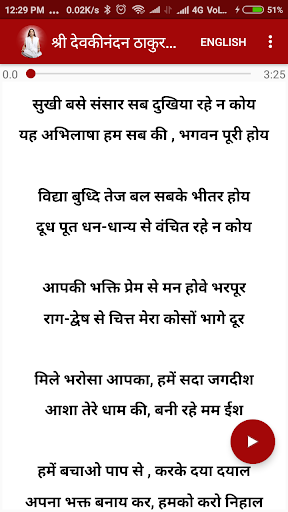 12:29 PM ... 0.02K/s 4G VoL... 51%
श्री देवकीनंदन ठाकुर... ENGLISH
0.0 3:25
सुखी बसे संसार सब दुखिया रहे न कोय
यह अभिलाषा हम सब की , भगवन पूरी होय
विद्या बुध्दि तेज बल सबके भीतर होय
दूध पूत धन-धान्य से वंचित रहे न कोय
आपकी भक्ति प्रेम से मन होवे भरपूर
राग-द्वेष से चित्त मेरा कोसों भागे दूर
मिले भरोसा आपका, हमें सदा जगदीश
आशा तेरे धाम की, बनी रहे मम ईश
हमें बचाओ पाप से , करके दया दयाल
अपना भक्त बनाय कर, हमको करो निहाल